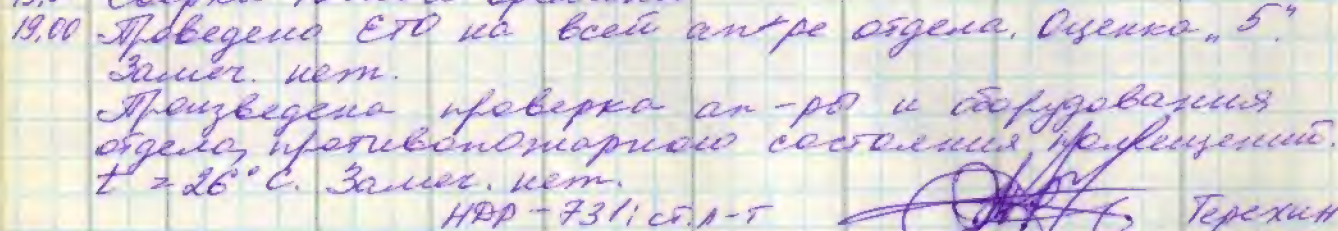 19.00 Проведено ЕТО на всей ап-ре отдела. Оценка „5".
Замеч. нет.
Произведена проверка ап-ры и оборудования
отдела, противопожарного состояния помещений.
t = 26° С. Замеч. нет.
НДР-731: ст. л-т Терехин